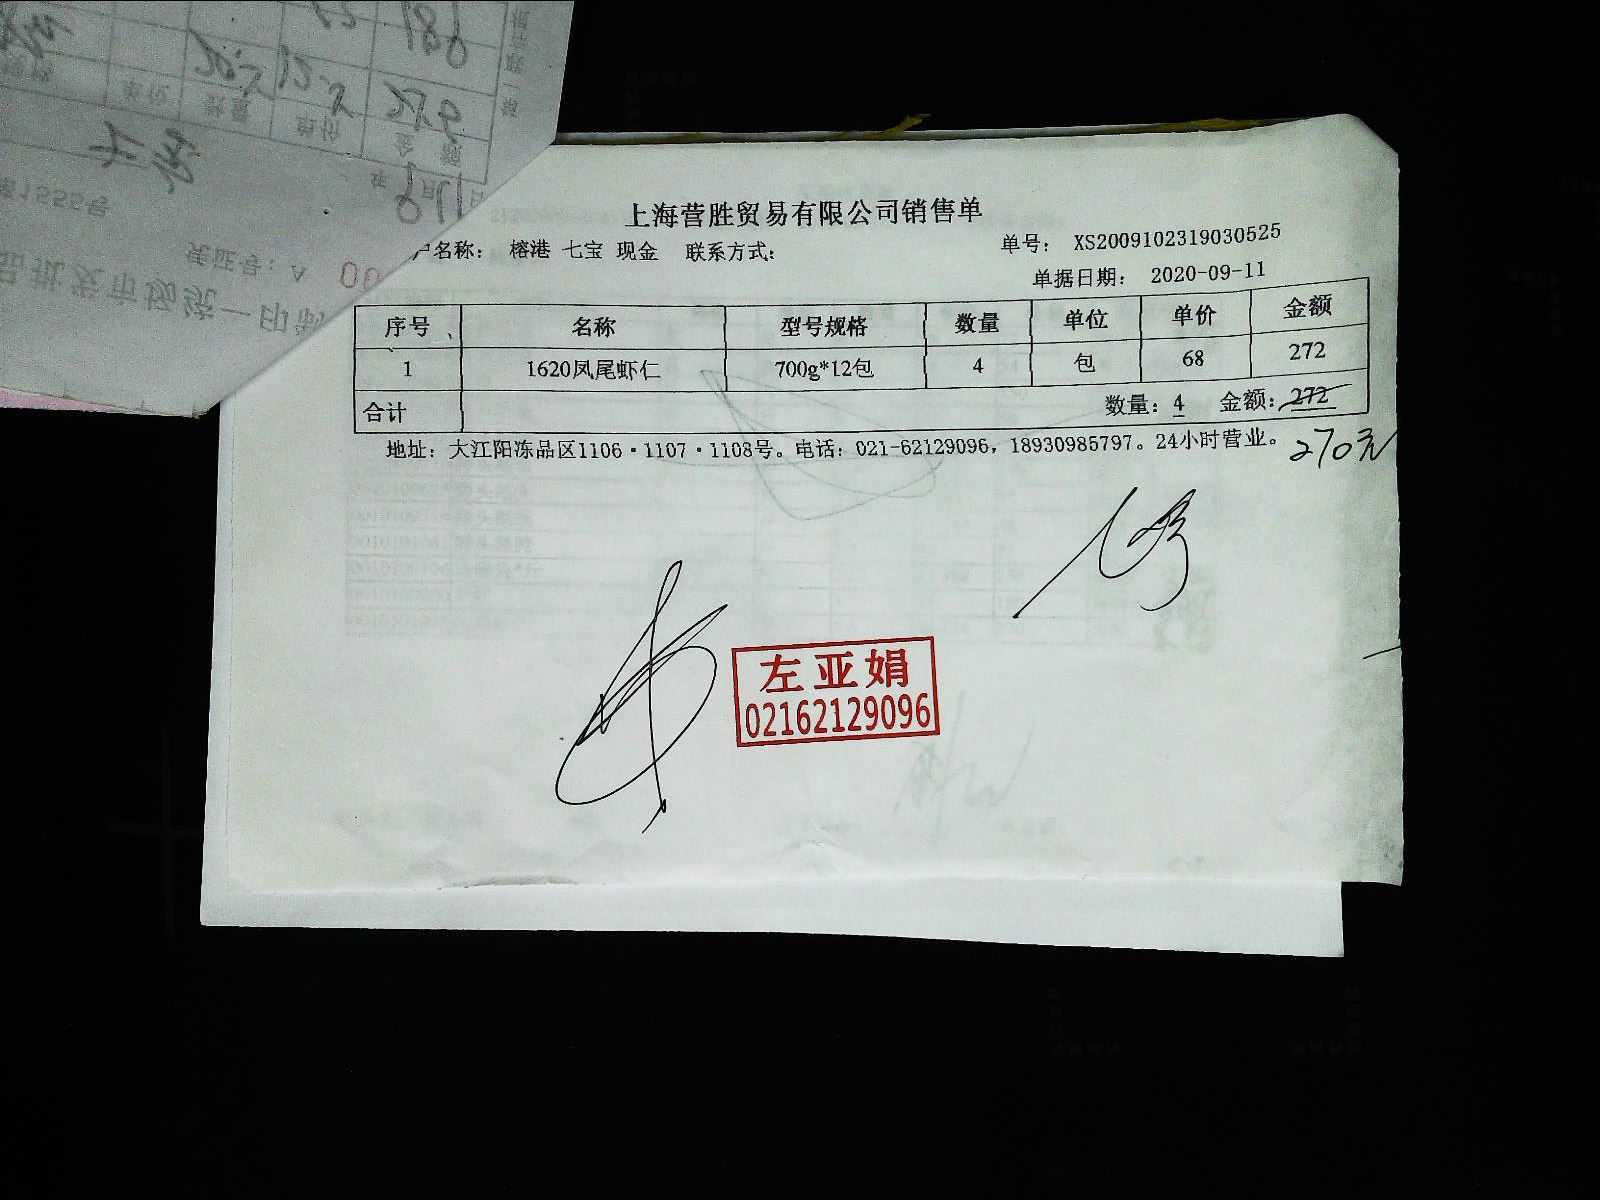 上海营胜贸易有限公司销售单
户名称： 榕港 七宝 现金 联系方式： 单号： XS2009102319030525
单据日期： 2020-09-11
序号 名称 型号规格 数量 单位 单价 金额
1 1620凤尾虾仁 700g*12包 4 包 68 272
合计 数量：4 金额：272
地址：大江阳冻品区1106·1107·1108号。电话：021-62129096，18930985797。24小时营业。
270元
左亚娟
02162129096
品批发市场统一印制
凭证号：A 00
第1555号
年 月 11 日
数量 单价 金额